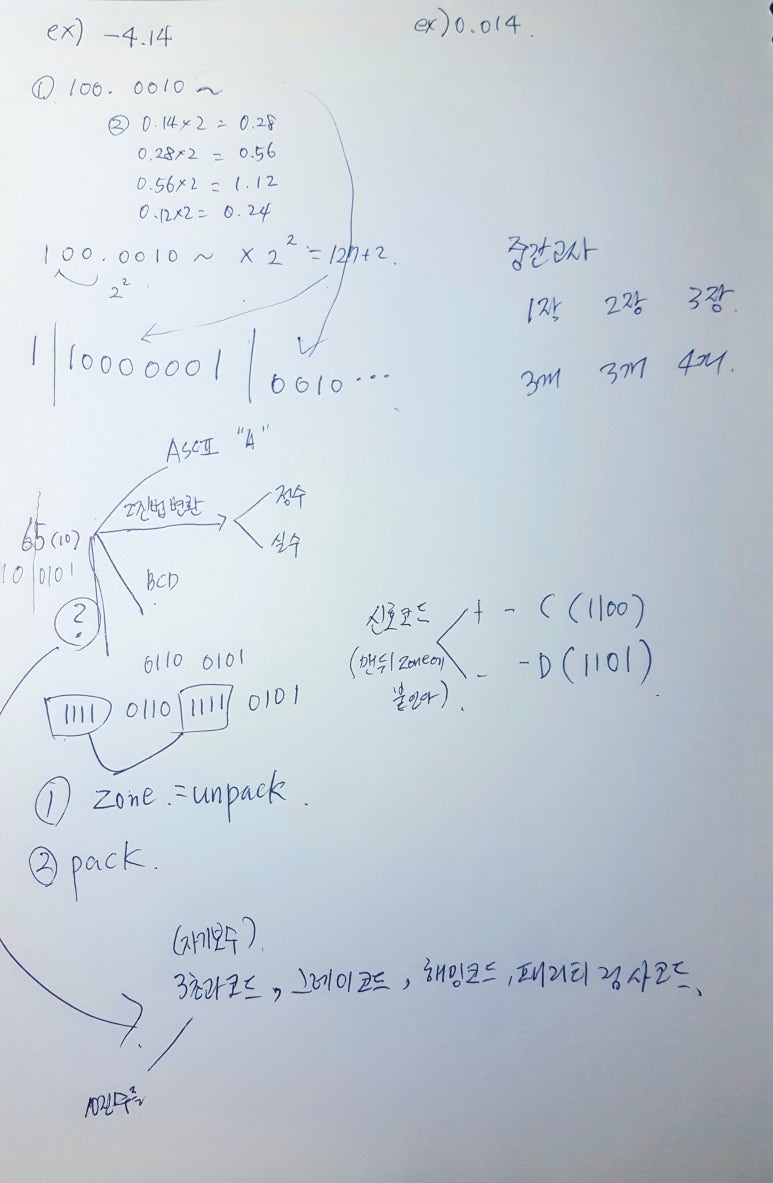 ex) -4.14
ex) 0.014.
① 100. 0010 ~
② 0.14×2 = 0.28
0.28×2 = 0.56
0.56×2 = 1.12
0.12×2 = 0.24
100.0010 ~ × 2² = 127+2.
2²
1 | 10000001 | 0010 ...
중간고사
1장 2장 3장.
3개 3개 4개.
ASCII "A"
2진법 변환
정수
실수
65(10)
10 0101
BCD
?
0110 0101
1111 0110 1111 0101
신호코드
(맨뒤 zone에
붙인다).
+ - C (1100)
- - D (1101).
① zone.=unpack.
② pack.
(자기보수).
3초과코드, 그레이코드, 해밍코드, 패리티 검사코드,
10진수를